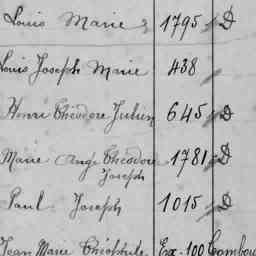 Louis Marie 1795 D
Louis Joseph Marie 438
Henri Théodore Julien 645 D
Marie Ange Théodore 1781 D
Joseph
Paul Joseph 1015 D
Jean Marie Théophile Ex. 100 Combou